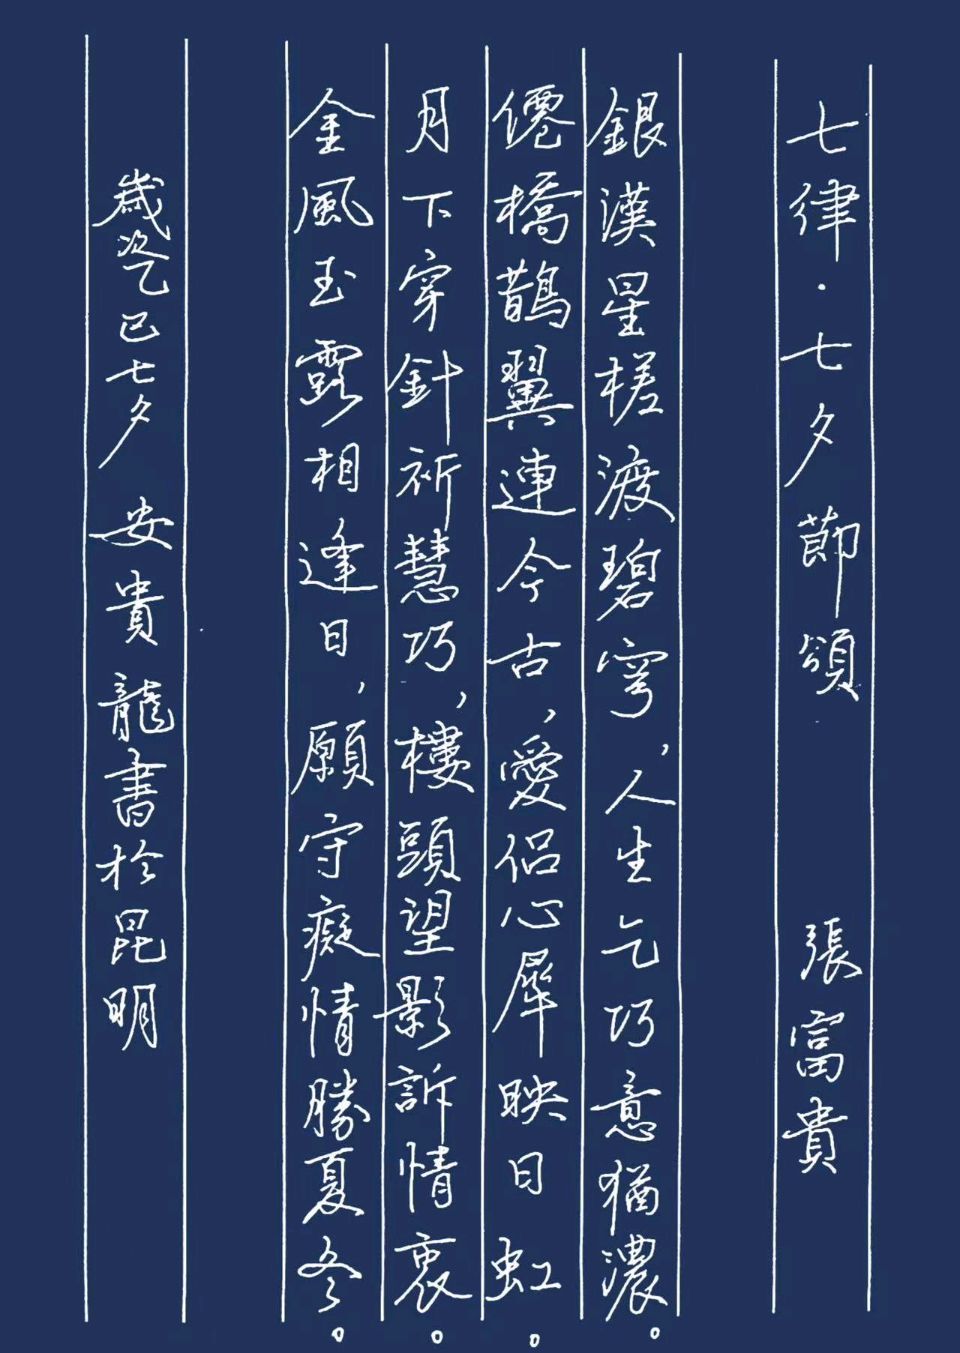 七律·七夕節頌 張富貴
銀漢星槎渡碧穹，人生乞巧意猶濃。
僊橋鵲翼連今古，愛侶心犀映日虹。
月下穿針祈慧巧，樓頭望影訴情衷。
金風玉露相逢日，願守癡情勝夏冬。
歲次乙巳七夕 安貴龍書於昆明